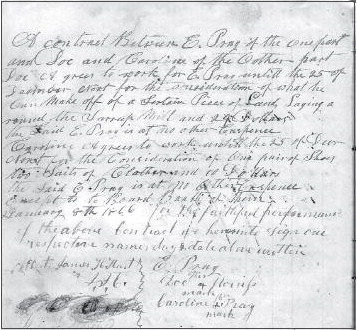 A contract Between E. Prag of the one part
and Doc and Caroline of the Other part
Doc agrees to work for E Prag untill the 25 of
December next for the consideration of what he
Can Make off of a Sertain Piece of Land, Laying a
round the Mill and 20 Dollars
the Said E. Prag is at no other Expence
Caroline agrees to work untill the 25 of Decr
Next for the Consideration of One pair of Shoes
two Suits of Clothes and 10 Dollars
The Said E. Prag is at no Other Expence
Except to Board of them
January 8th 1866 for the faithful performance
of the above Contract we hereunto Sign our
respective names day & date above written
Attest James H Hurt
E. Prag
his
Doc
mark
her
Caroline x Prag
mark